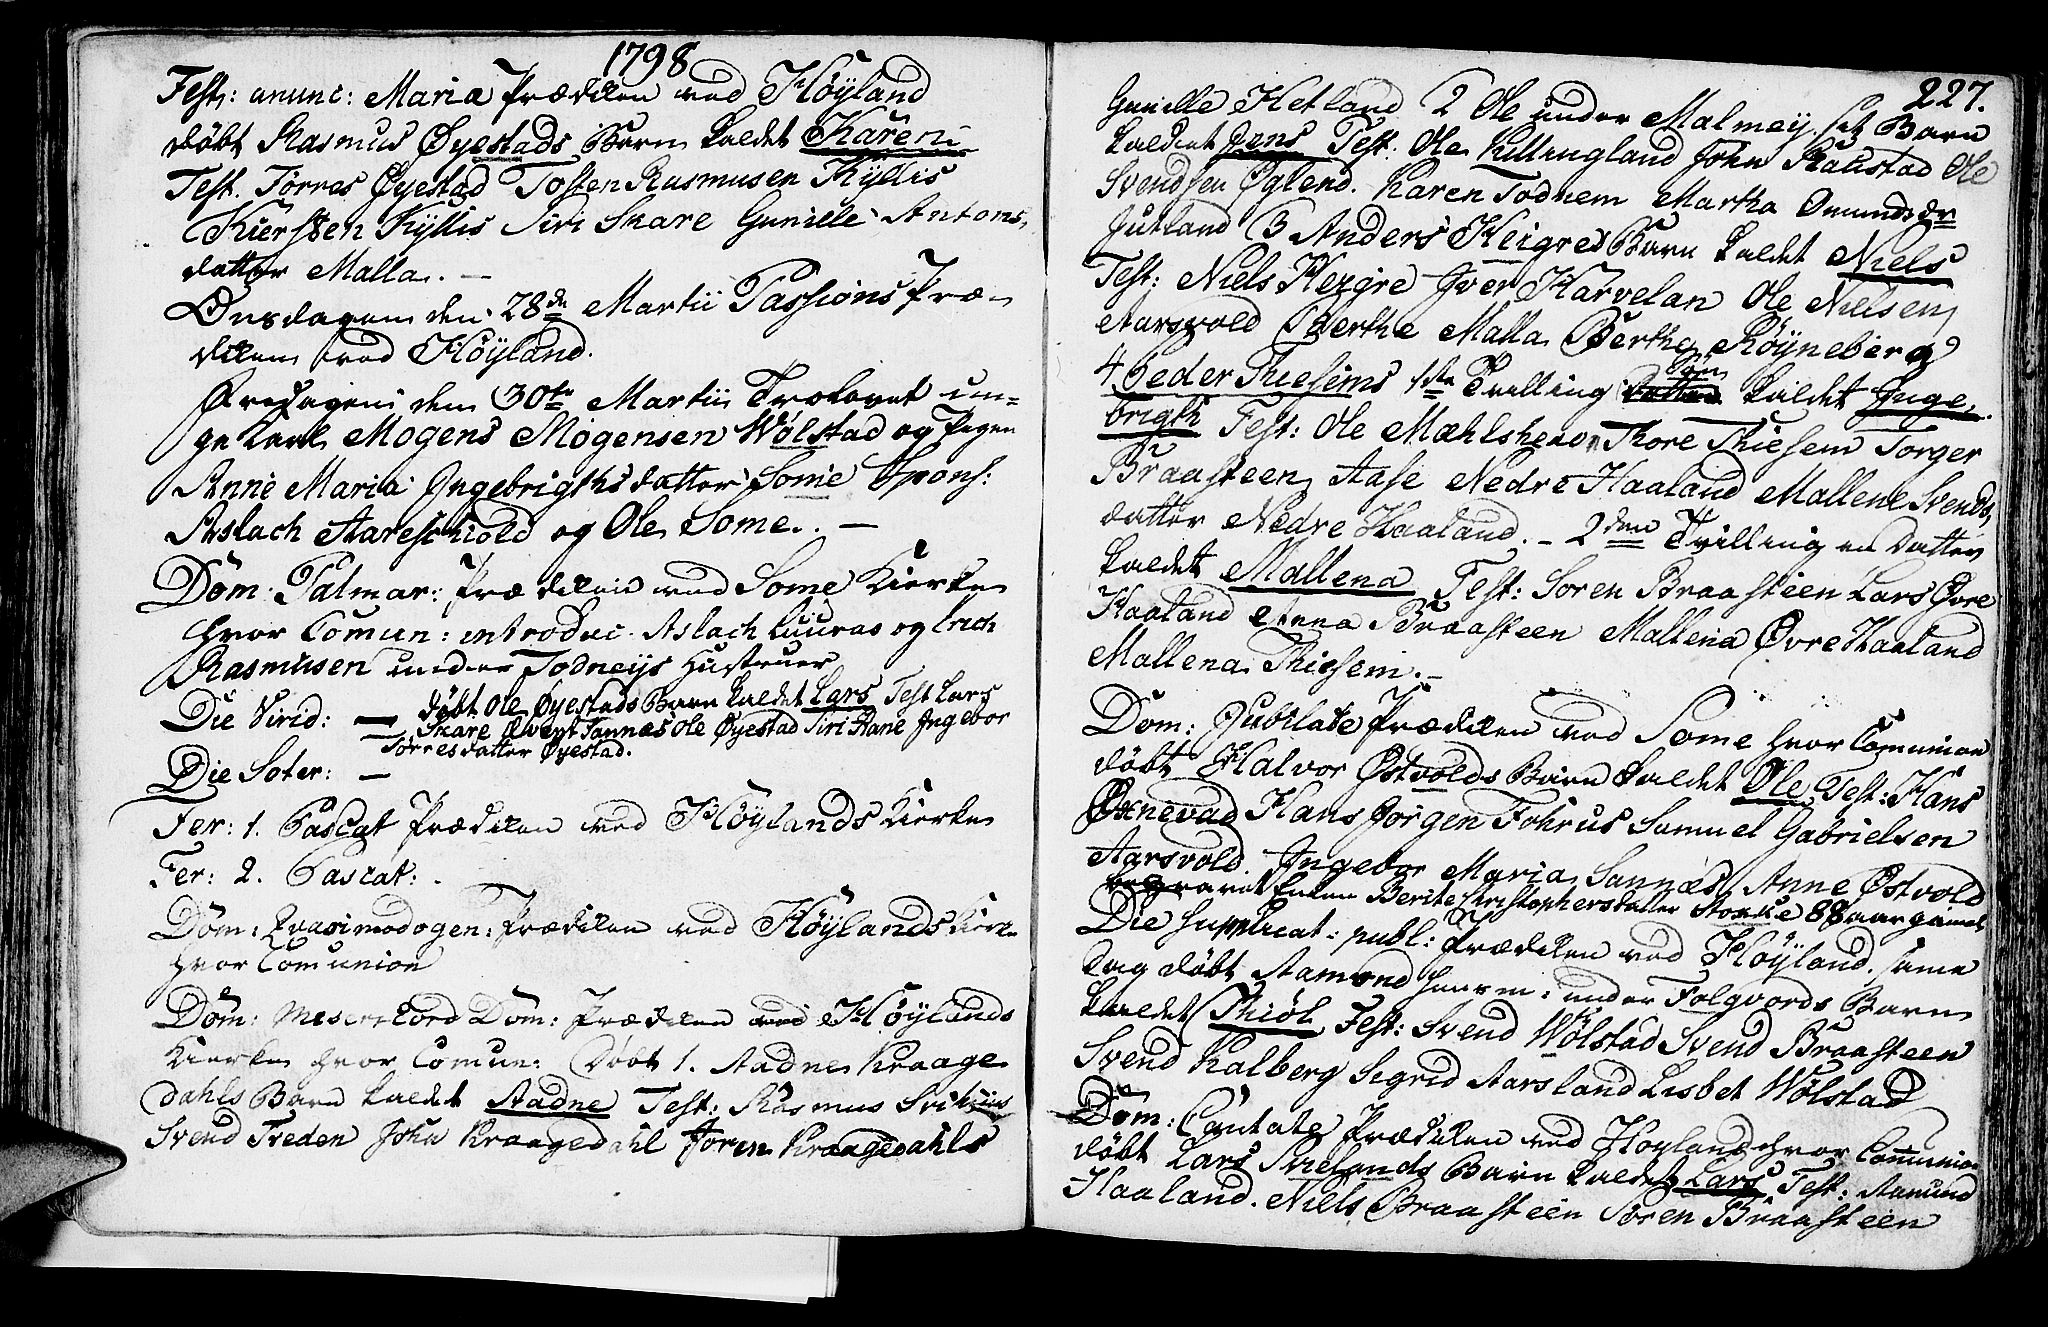 1798
Fest: anunc: Maria Prædiken ved Höyland
döbt Rasmus Øyestads Barn kaldet Karen
Test. Törres Øyestad Tosten Rasmusen Kyllis
Kiersten Kyllis Siri Skare Gunille Antons
datter Malla. —
Onsdagen den 28de Martii Passions Præ-
diken ved Höyland.
Fredagen den 30te Martii Trolovet un-
ge Karl Mogens Mogensen Wølstad og Pigen
Anne Maria Ingebrigthsdatter Some Spons:
Aslach Aareskiold og Ole Some. —
Dom: Palmar: Prædiken ved Some Kierke
hvor Comun: introduc. Aslach Luuras og Erich
Rasmusen under Todneys Hustruer
Die Virid: — döbt Ole Øyestads Barn kaldet Lars Test Lars
Skare Elvert Tannes Ole Øyestad Siri Hane Ingebor
Törresdatter Øyestad.
Die Soter: —
Fer: 1. Pascat Prædiken ved Höylands Kierke
Fer: 2. Pascat: .
Dom: Quasimodogen: Prædiken ved Höylands Kierke
hvor Comunion
Dom: Miserekord Dom: Prædiken ved Höylands
Kierke hvor Comun: Döbt 1. Aadne Kraage
dahls Barn kaldet Aadne Test: Rasmus
Svend Treden John Kraagedahl Joren Kraagedahls
227.
Gunille Hetland 2 Ole under Malmey. Barn
kaldet Jens Test. Ole Killingland John Skaustad Ole
Svendsen Øglend. Karen Todnem Martha Omundsdr
Jutland 3 Anders Heigres Barn kaldet Niels
Test: Niels Heigre Iver Harvelan Ole Nielsen
Aarsvold Berthe Malla Berthe Røyneberg
4 Peder Thiesems 1ste Tvilling Søn kaldet Inge-
brigth Test: Ole Mæhlsheio Thore Thiesem Torger
Braasteen Aase Nedre Haaland Mallene Svends
datter Nedre Haaland. – 2den Tvilling en Datter
kaldet Mallena Test: Soren Braasteen Lars Øvre
Haaland Anna Braasteen Mallena Øvre Haaland
Mallena Thiesem. –
Dom: Jubilate Prædiken ved Some hvor Comunion
döbt Halvor Østvolds Barn kaldet Ole Test: Hans
Øxnevad Hans Jörgen Fohrus Samuel Gabrielsen
Aarsvold. Ingebor Maria Sannæs Anne Østvold
begravet Enken Berite Christophersdatter Stokke 88 aar gamel
Die supplicat: publ: Prædiken ved Höyland. same
Dag döbt Aamond Hansen: under Folgvords Barn
kaldet Thiöl Test: Svend Wølstad Svend Braasteen
Svend Kalberg Sigrid Aarsland Lisbet Wølstad
Dom: Cantate Prædiken ved Höyland hvor Comunion
döbt Lars Svielands Barn kaldet Lars Test: Aamund
Haaland. Niels Braasteen Søren Braasteen